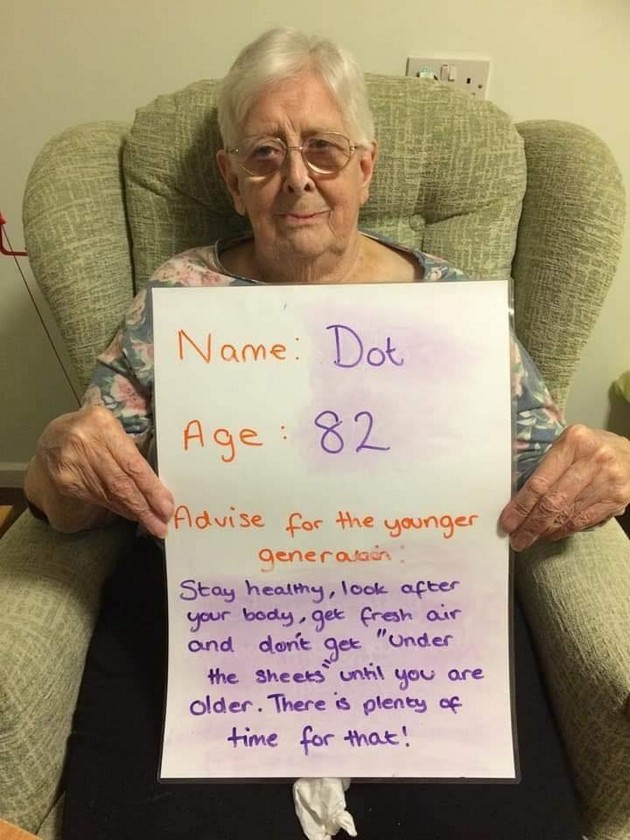 Name: Dot
Age: 82
Advise for the younger
generation:
Stay healthy, look after
your body, get fresh air
and don't get "under
the sheets" until you are
older. There is plenty of
time for that!